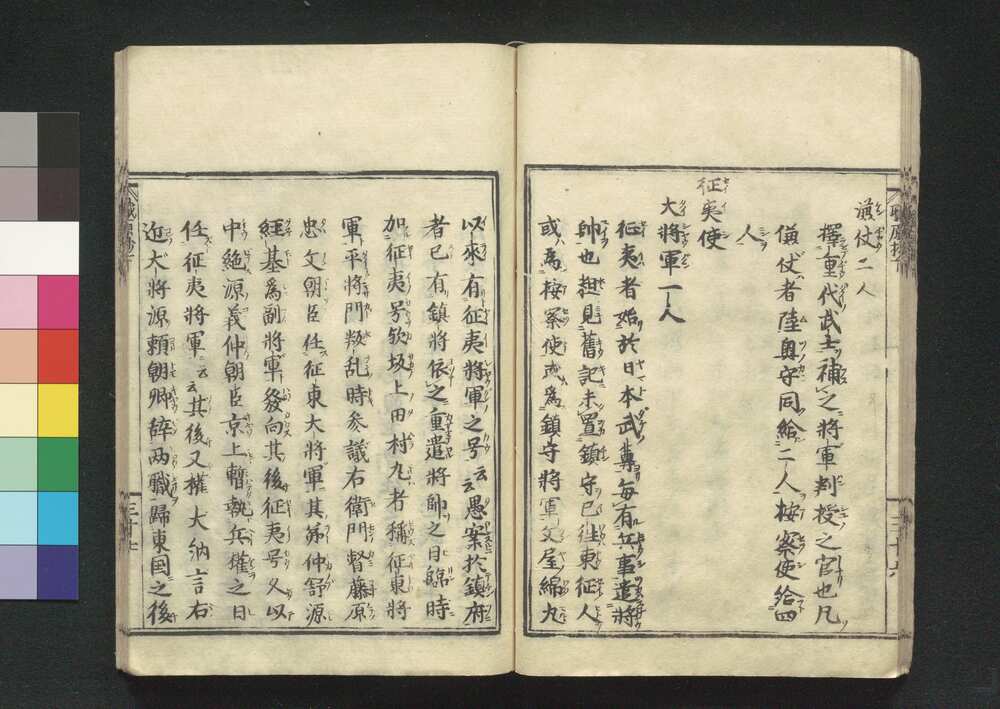 傔仗二人
擇重代武士補之將軍判授之官也凡
傔仗者陸奥守同給二人按察使給四
人
征夷使
大將軍一人
征夷者始於日本武尊毎有兵事遣將
帥也担見舊記未置鎮守已往東征人
或為按察使或為鎮守將軍文屋綿丸
三十六
以來有征夷將軍之号云云愚案於鎮府
者已有鎮將依之重遣將帥之日臨時
加征夷号欤坂上田村丸者稱征東將
軍平將門叛乱時参議右衛門督藤原
忠文朝臣任征東大將軍其弟仲舒源
経基為副將軍發向其後征夷号又以
中絶源義仲朝臣京上暫執兵權之日
任征夷將軍云云其後又權大納言右
近大將源頼朝卿辞両職歸東国之後
職原抄下
三十七